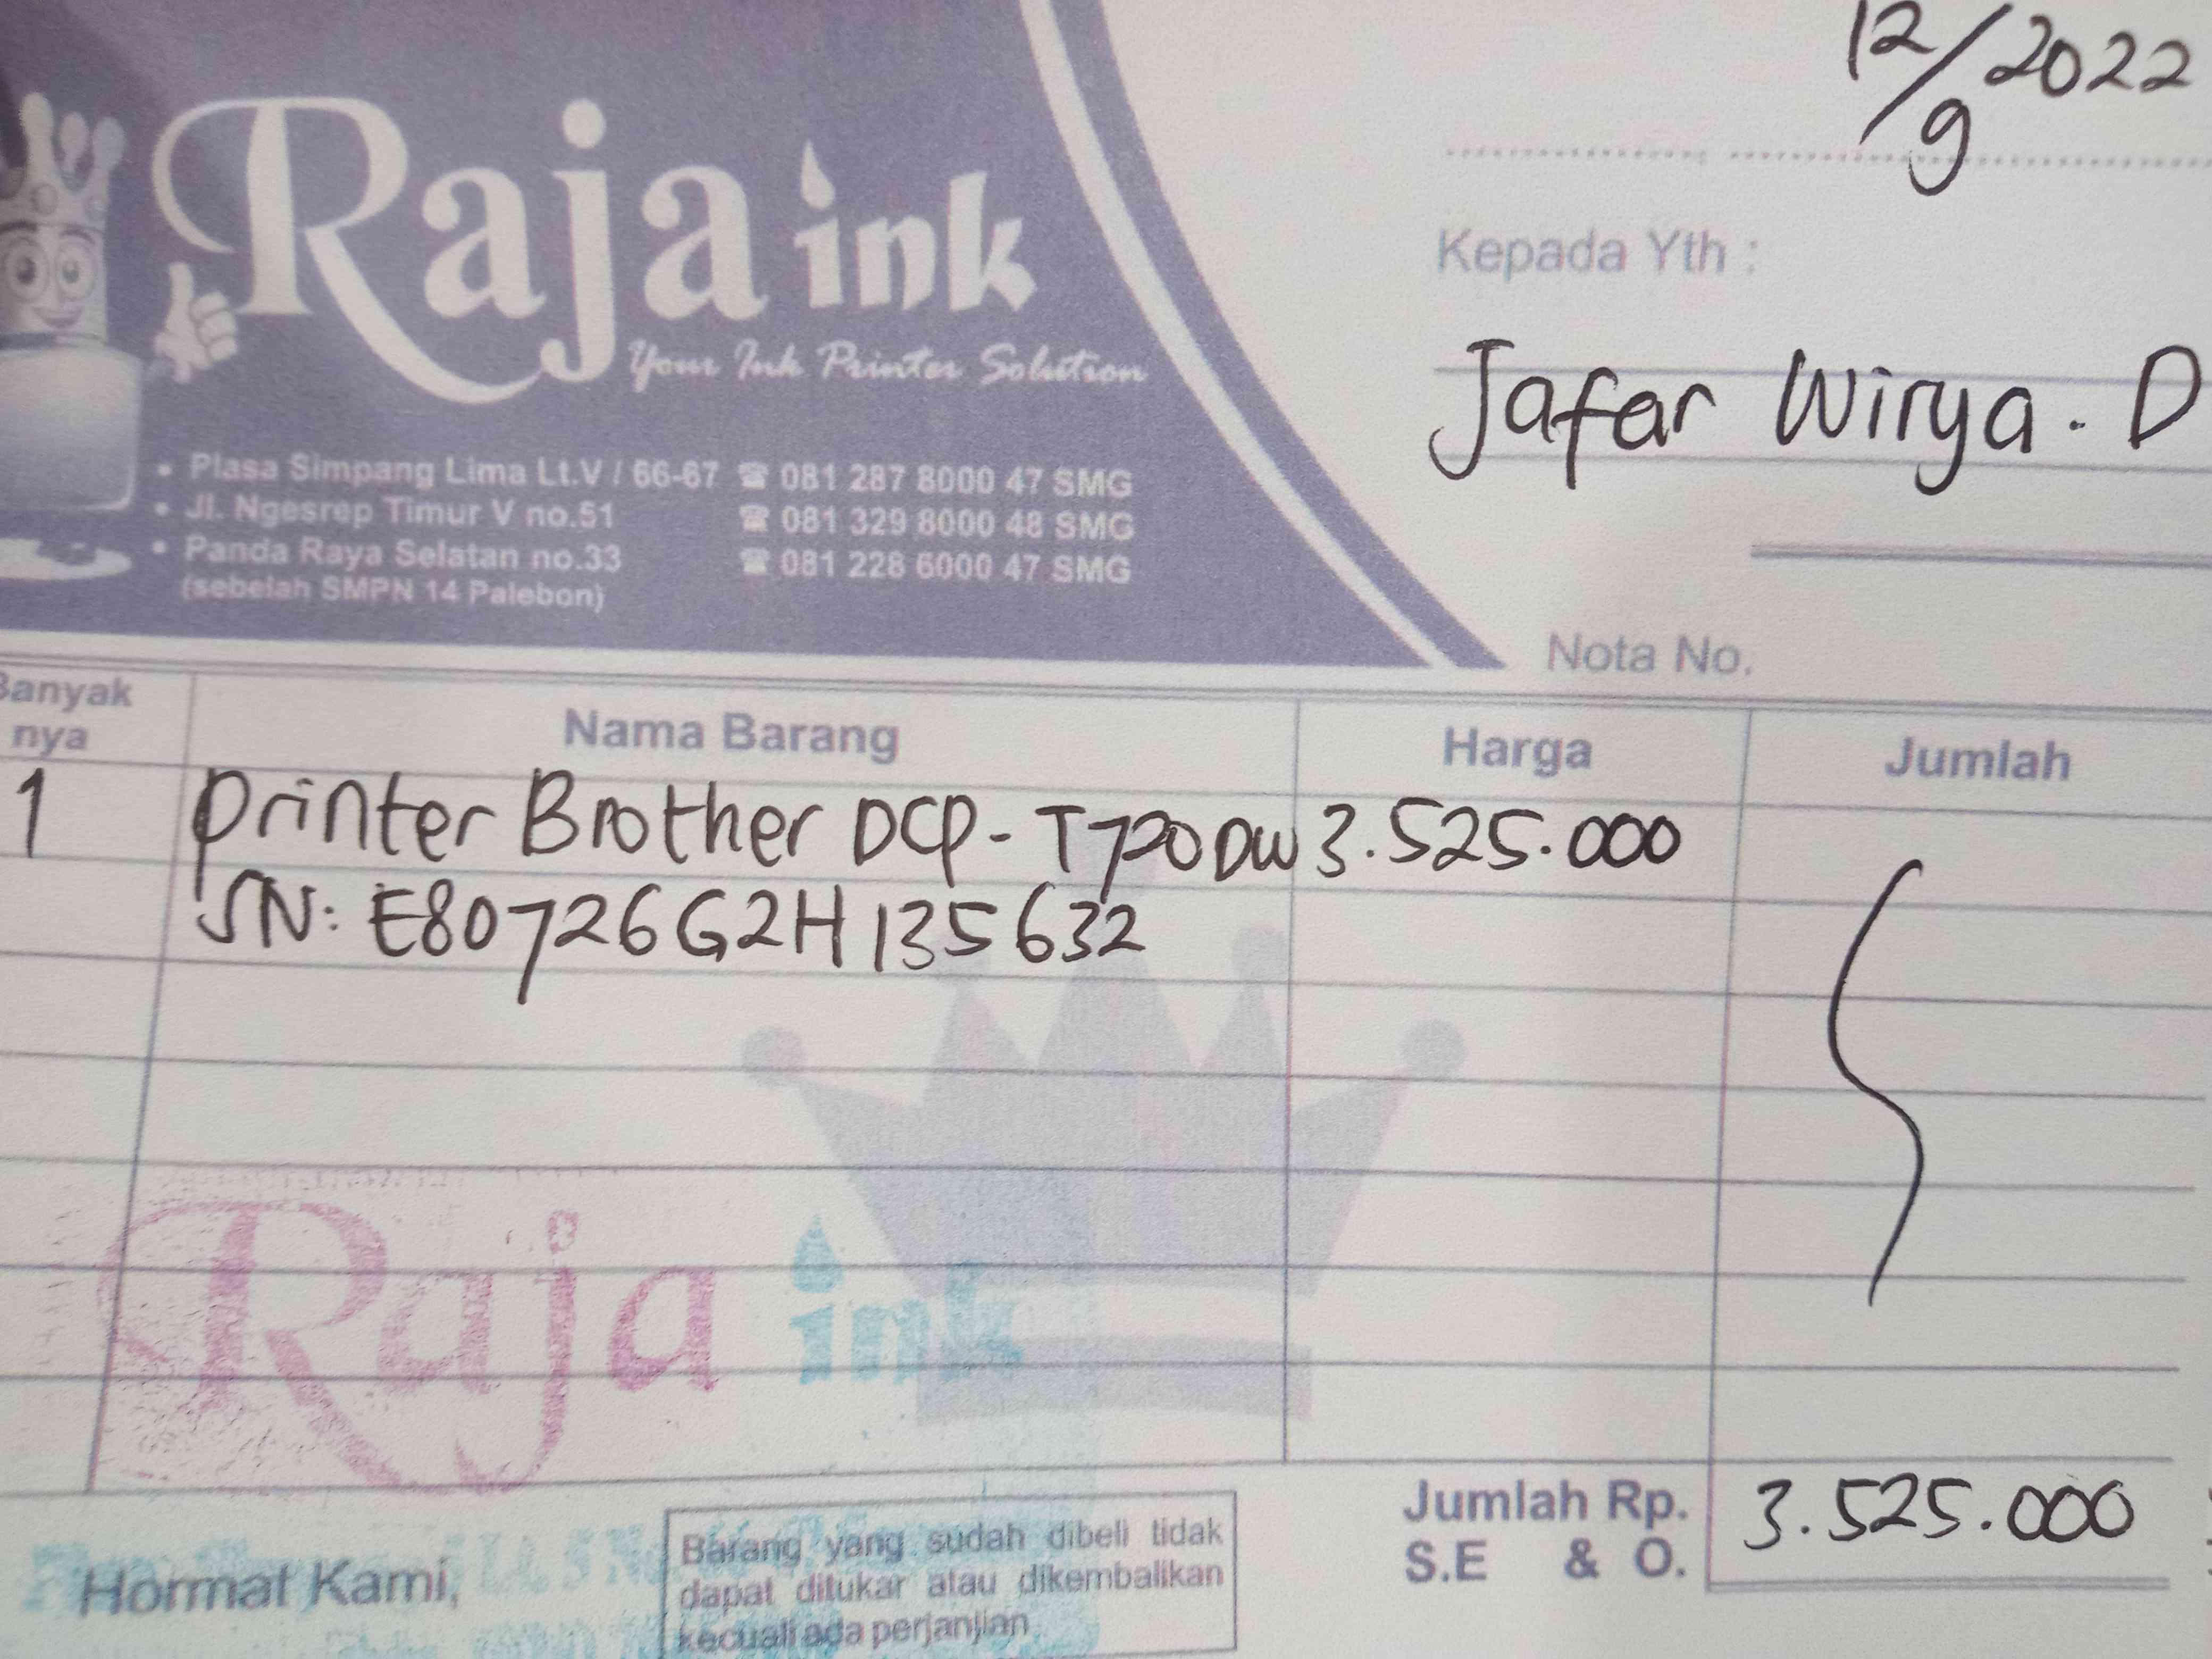 Raja ink
Your Ink Printer Solution
• Plasa Simpang Lima Lt.V / 66-67 ☎ 081 287 8000 47 SMG
• Jl. Ngesrep Timur V no.51 ☎ 081 329 8000 48 SMG
• Panda Raya Selatan no.33 ☎ 081 228 6000 47 SMG
(sebelah SMPN 14 Palebon)
12/9 2022
Kepada Yth :
Jafar Wirya. D
Nota No.
Banyak
nya
Nama Barang
Harga
Jumlah
1 Printer Brother DCP-T720DW 3.525.000
SN: E80726G2H135632
Raja ink
Jumlah Rp. 3.525.000
S.E & O.
Hormat Kami,
Barang yang sudah dibeli tidak
dapat ditukar atau dikembalikan
kecuali ada perjanjian